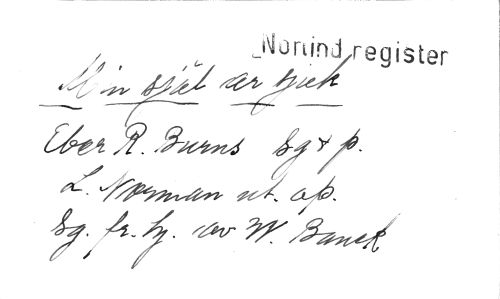 Norlind register
Min själ är sjuk
Eber R. Burns Sg & p.
L. Norman ut. op.
Sg. fr. hj. av W. Banck